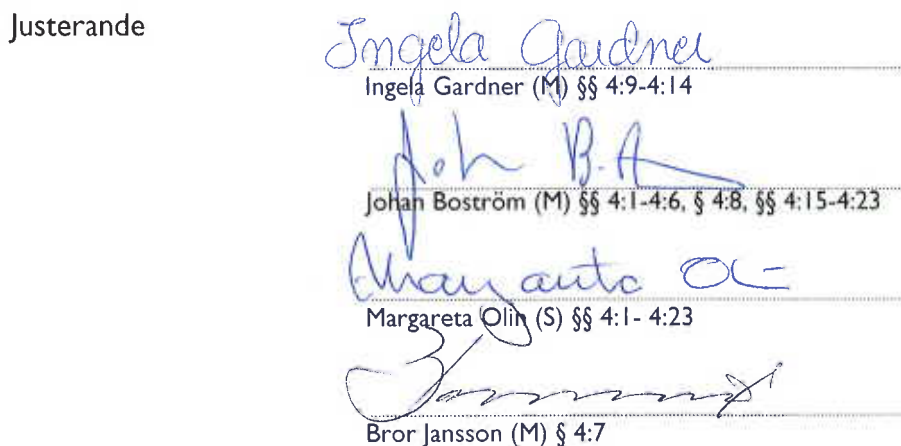 Justerande
Ingela Gardner
Ingela Gardner (M) §§ 4:9-4:14
Johan Boström (M) §§ 4:1-4:6, § 4:8, §§ 4:15-4:23
Margareta Olin (S) §§ 4:1- 4:23
Bror Jansson (M) § 4:7